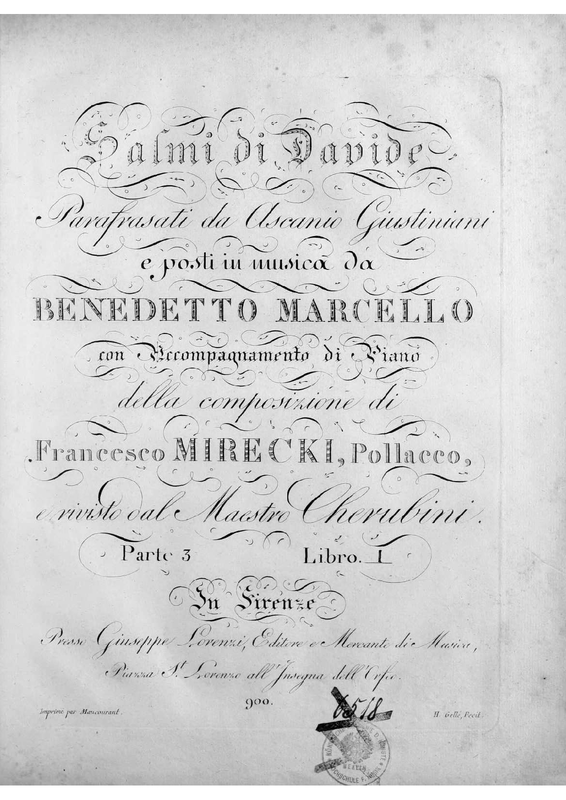 Salmi di Davide
Parafrasati da Ascanio Giustiniani
e posti in musica da
BENEDETTO MARCELLO
con Accompagnamento di Piano
della composizione di
Francesco MIRECKI, Pollacco,
e rivisto dal Maestro Cherubini.
Parte 3 Libro. I
In Firenze
Presso Giuseppe Lorenzi, Editore e Mercante di Musica,
Piazza St. Lorenzo all'Insegna dell'Orfeo.
900.
6518
Imprimé par Maucourant.
H. Gellé, Fecit.
BERLIN